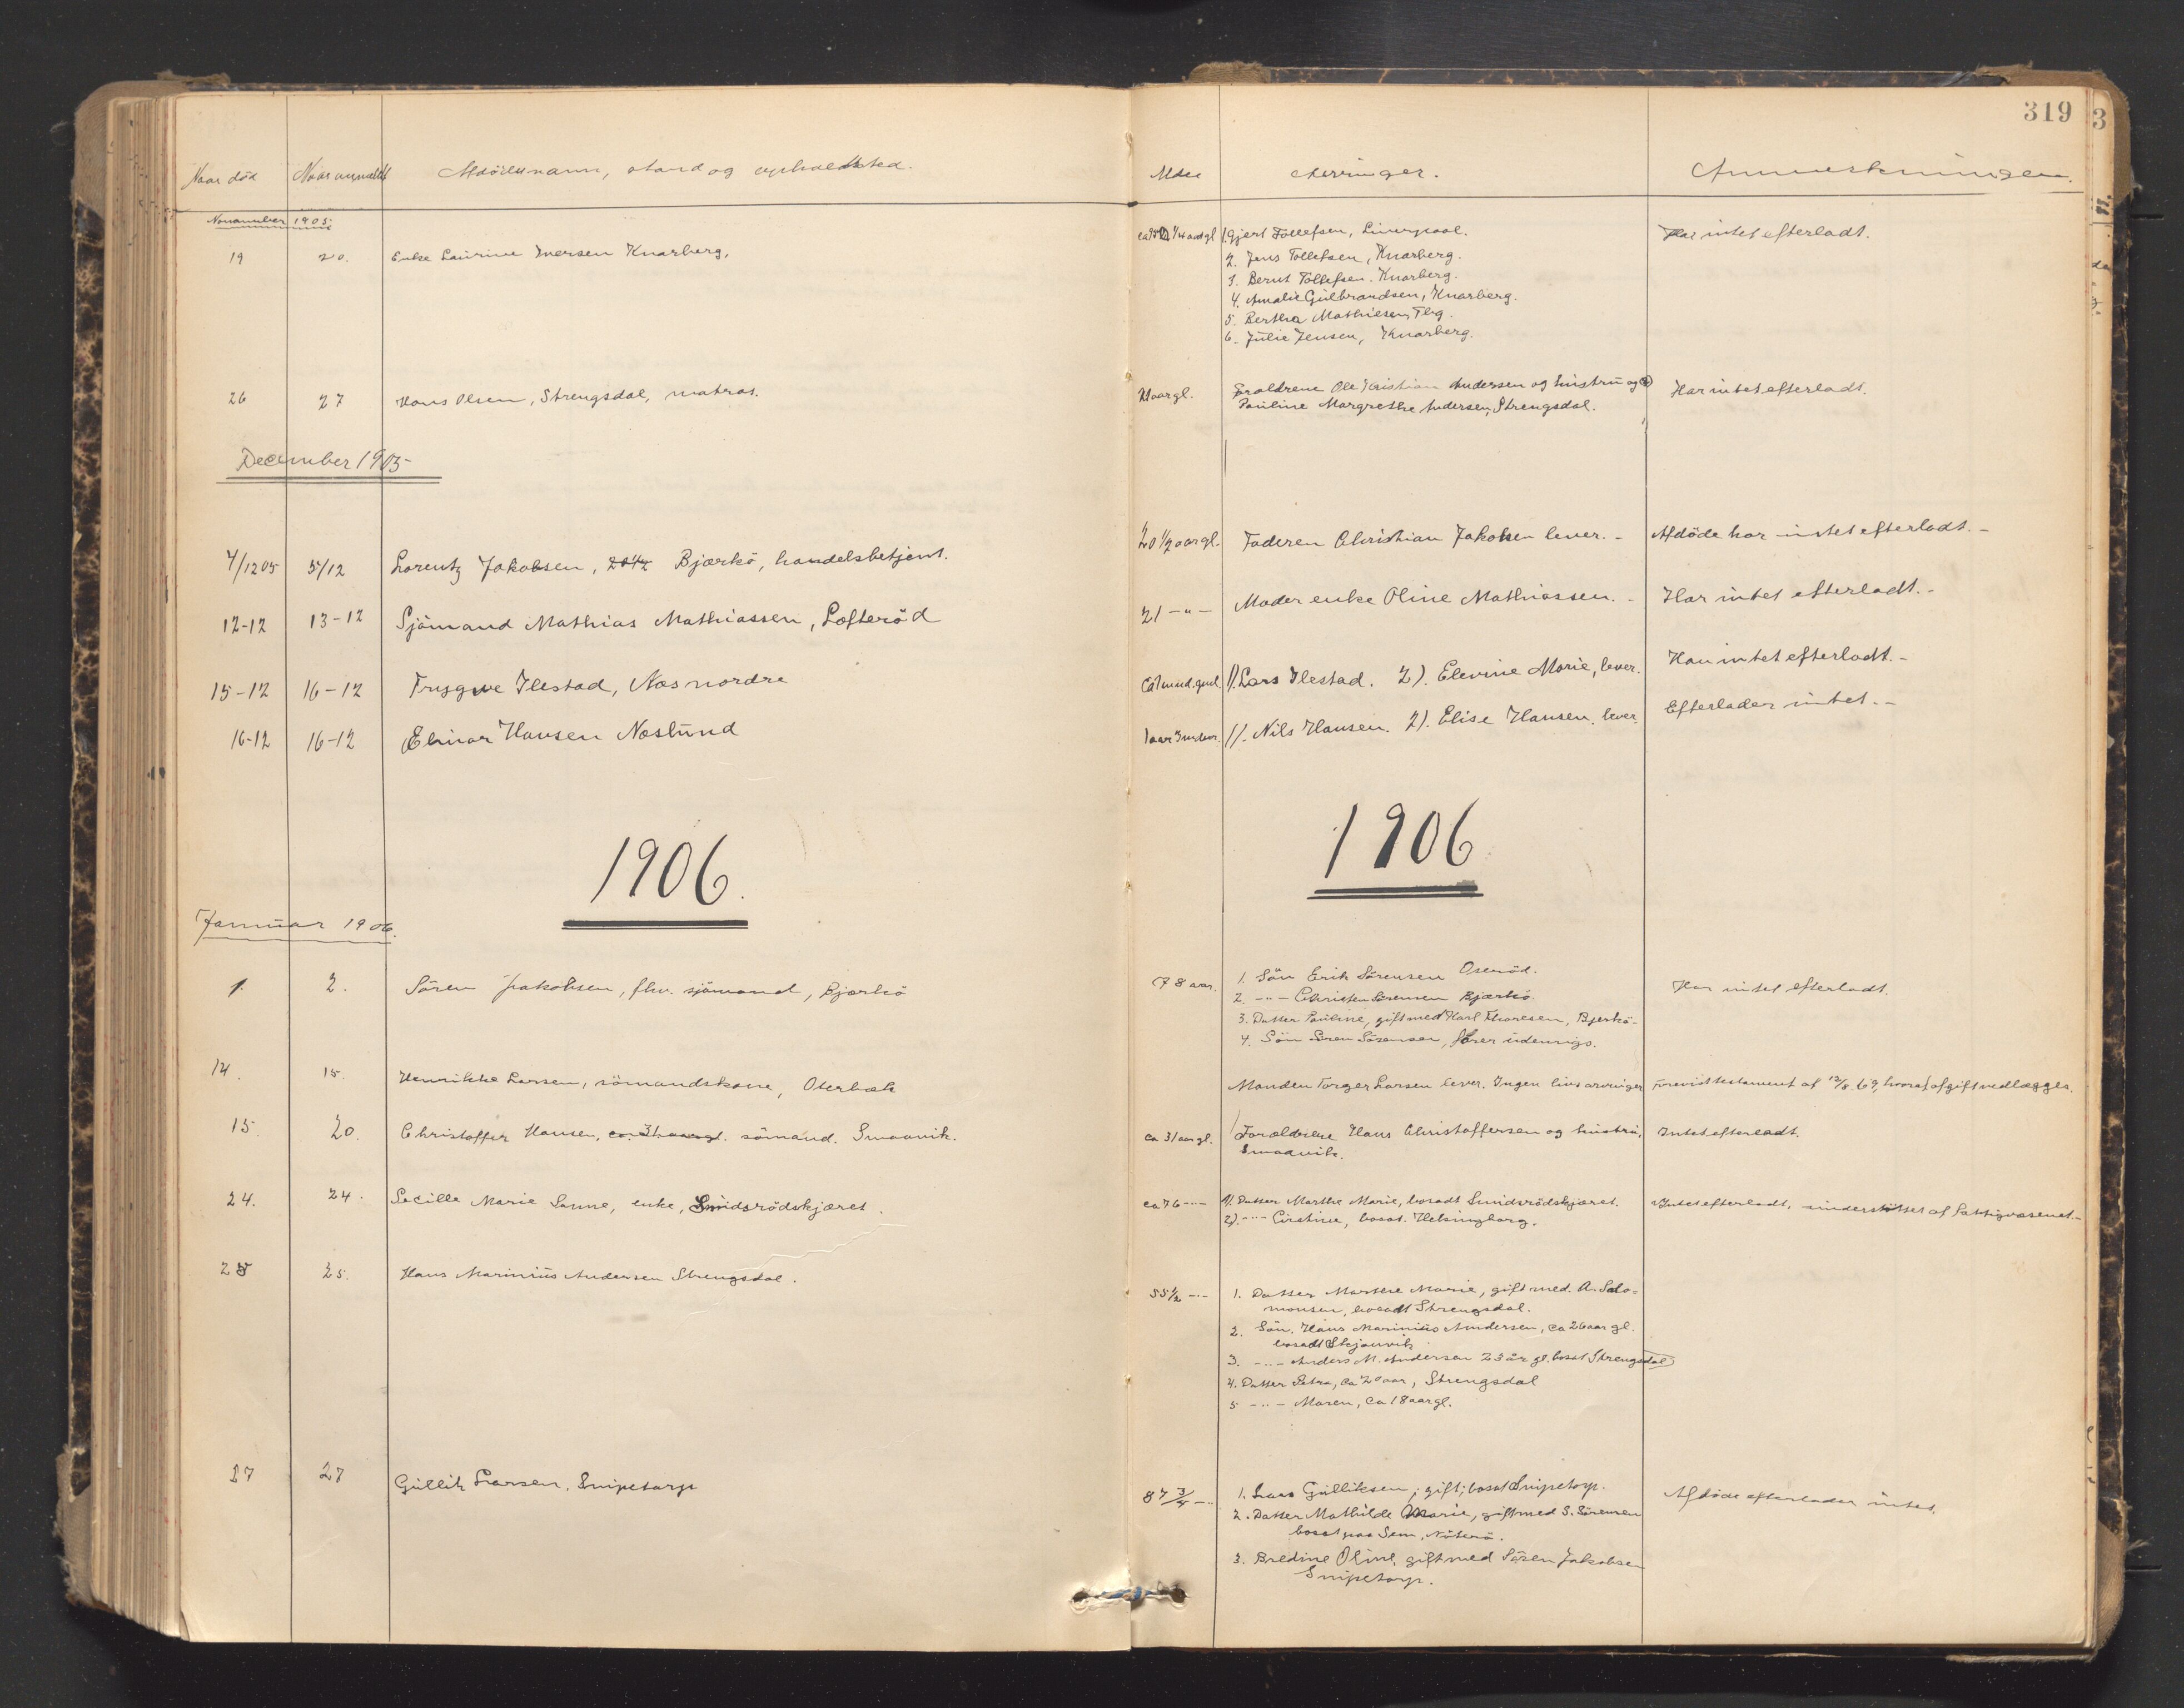 319
Naar död Naar anmeldt Afdödes navn, stand og opholdssted. Alder Arvinger. Anmerkninger.
November 1905
19 20. Enke Laurine Iversen Knarberg, 1. Gjert Tollefsen, Liverpool. Har intet efterladt.
2. Jens Tollefsen, Knarberg.
3. Bernt Tollefsen. Knarberg.
4. Amalie Gulbrandsen, Knarberg.
5. Bertha Mathiesen, Tbg.
6. Julie Jensen, Knarberg.
26 27 Hans Olsen, Strengsdal, matros. 21 aar gl. Forældrene Ole Kristian Andersen og hustru og Har intet efterladt.
Pauline Margrethe Andersen, Strengsdal.
December 1905
4/12 05 5/12 Lorentz Jakobsen, 20 1/2 Bjærkö, handelsbetjent. 20 1/2 aar gl. Faderen Christian Jakobsen lever. - Afdöde har intet efterladt. -
12-12 13-12 Sjömand Mathias Mathiassen, Lofteröd 21 -"- Moder enke Oline Mathiassen. - Har intet efterladt. -
15-12 16-12 Trygve Ilestad, Næs nordre ca 7 mnd. gml. 1). Lars Ilestad. 2). Elevine Marie, lever. Har intet efterladt. -
16-12 16-12 Einar Hansen Næslund 1 aar 3 mdr. 1). Nils Hansen. 2). Elise Hansen. lever. Efterlader intet. -
1906. 1906
Januar 1906.
1. 2. Sören Jakobsen, fhv. sjömand, Bjærkö 78 aar. 1. Sön Erik Sörensen Oseröd. Har intet efterladt.
2. -"- Christen Sörensen Bjærkö
3. Datter Pauline, gift med Karl Thoresen, Bjerkö-
4. Sön Sören Sörensen, farer udenrigs.
14. 15. Henrikke Larsen, sömandskone, Oterbæk Manden Torger Larsen lever. Ingen livsarvinger Forevist testament af 12/8 69, hvoraf afgift vedlægges.
15. 20. Christoffer Hansen, ca. 31 aar gl. sömand. Smaavik. ca 31 aar gl. Forældrene Hans Christoffersen og hustru, Intet efterladt.
Smaavik.
24. 24. Secille Marie Sanne, enke, Smidsrödskjæret. ca 76 -"- 1). Datter Marthe Marie, bosadt Smidsrödskjæret. Intet efterladt, understöttet af Fattigvæsenet. -
2). -"- Cirstine, bosat. Helsingborg.
25 25. Hans Marinius Andersen Strengsdal. 55 1/2 -"- 1. Datter Marthe Marie, gift med. A. Salo-
monsen, bosadt Strengsdal.
2. Sön. Hans Marinius Andersen, ca 26 aar gl.
bosadt Skjærvik
3. -"- Anders M. Andersen 23 år gl. bosat Strengsdal
4. Datter Petra, ca 20 aar, Strengsdal
5 -"- Maren, ca 18 aar gl.
27 27 Gullik Larsen, Snipetorp 87 3/4 -"- 1. Lars Gulliksen; gift; bosat Snipetorp. Afdöde efterlader intet.
2. Datter Mathilde Marie, gift med S. Sörensen
bosat paa Sem, Nöterö.
3. Bredine Oline, gift med Sören Jakobsen
Snipetorp.